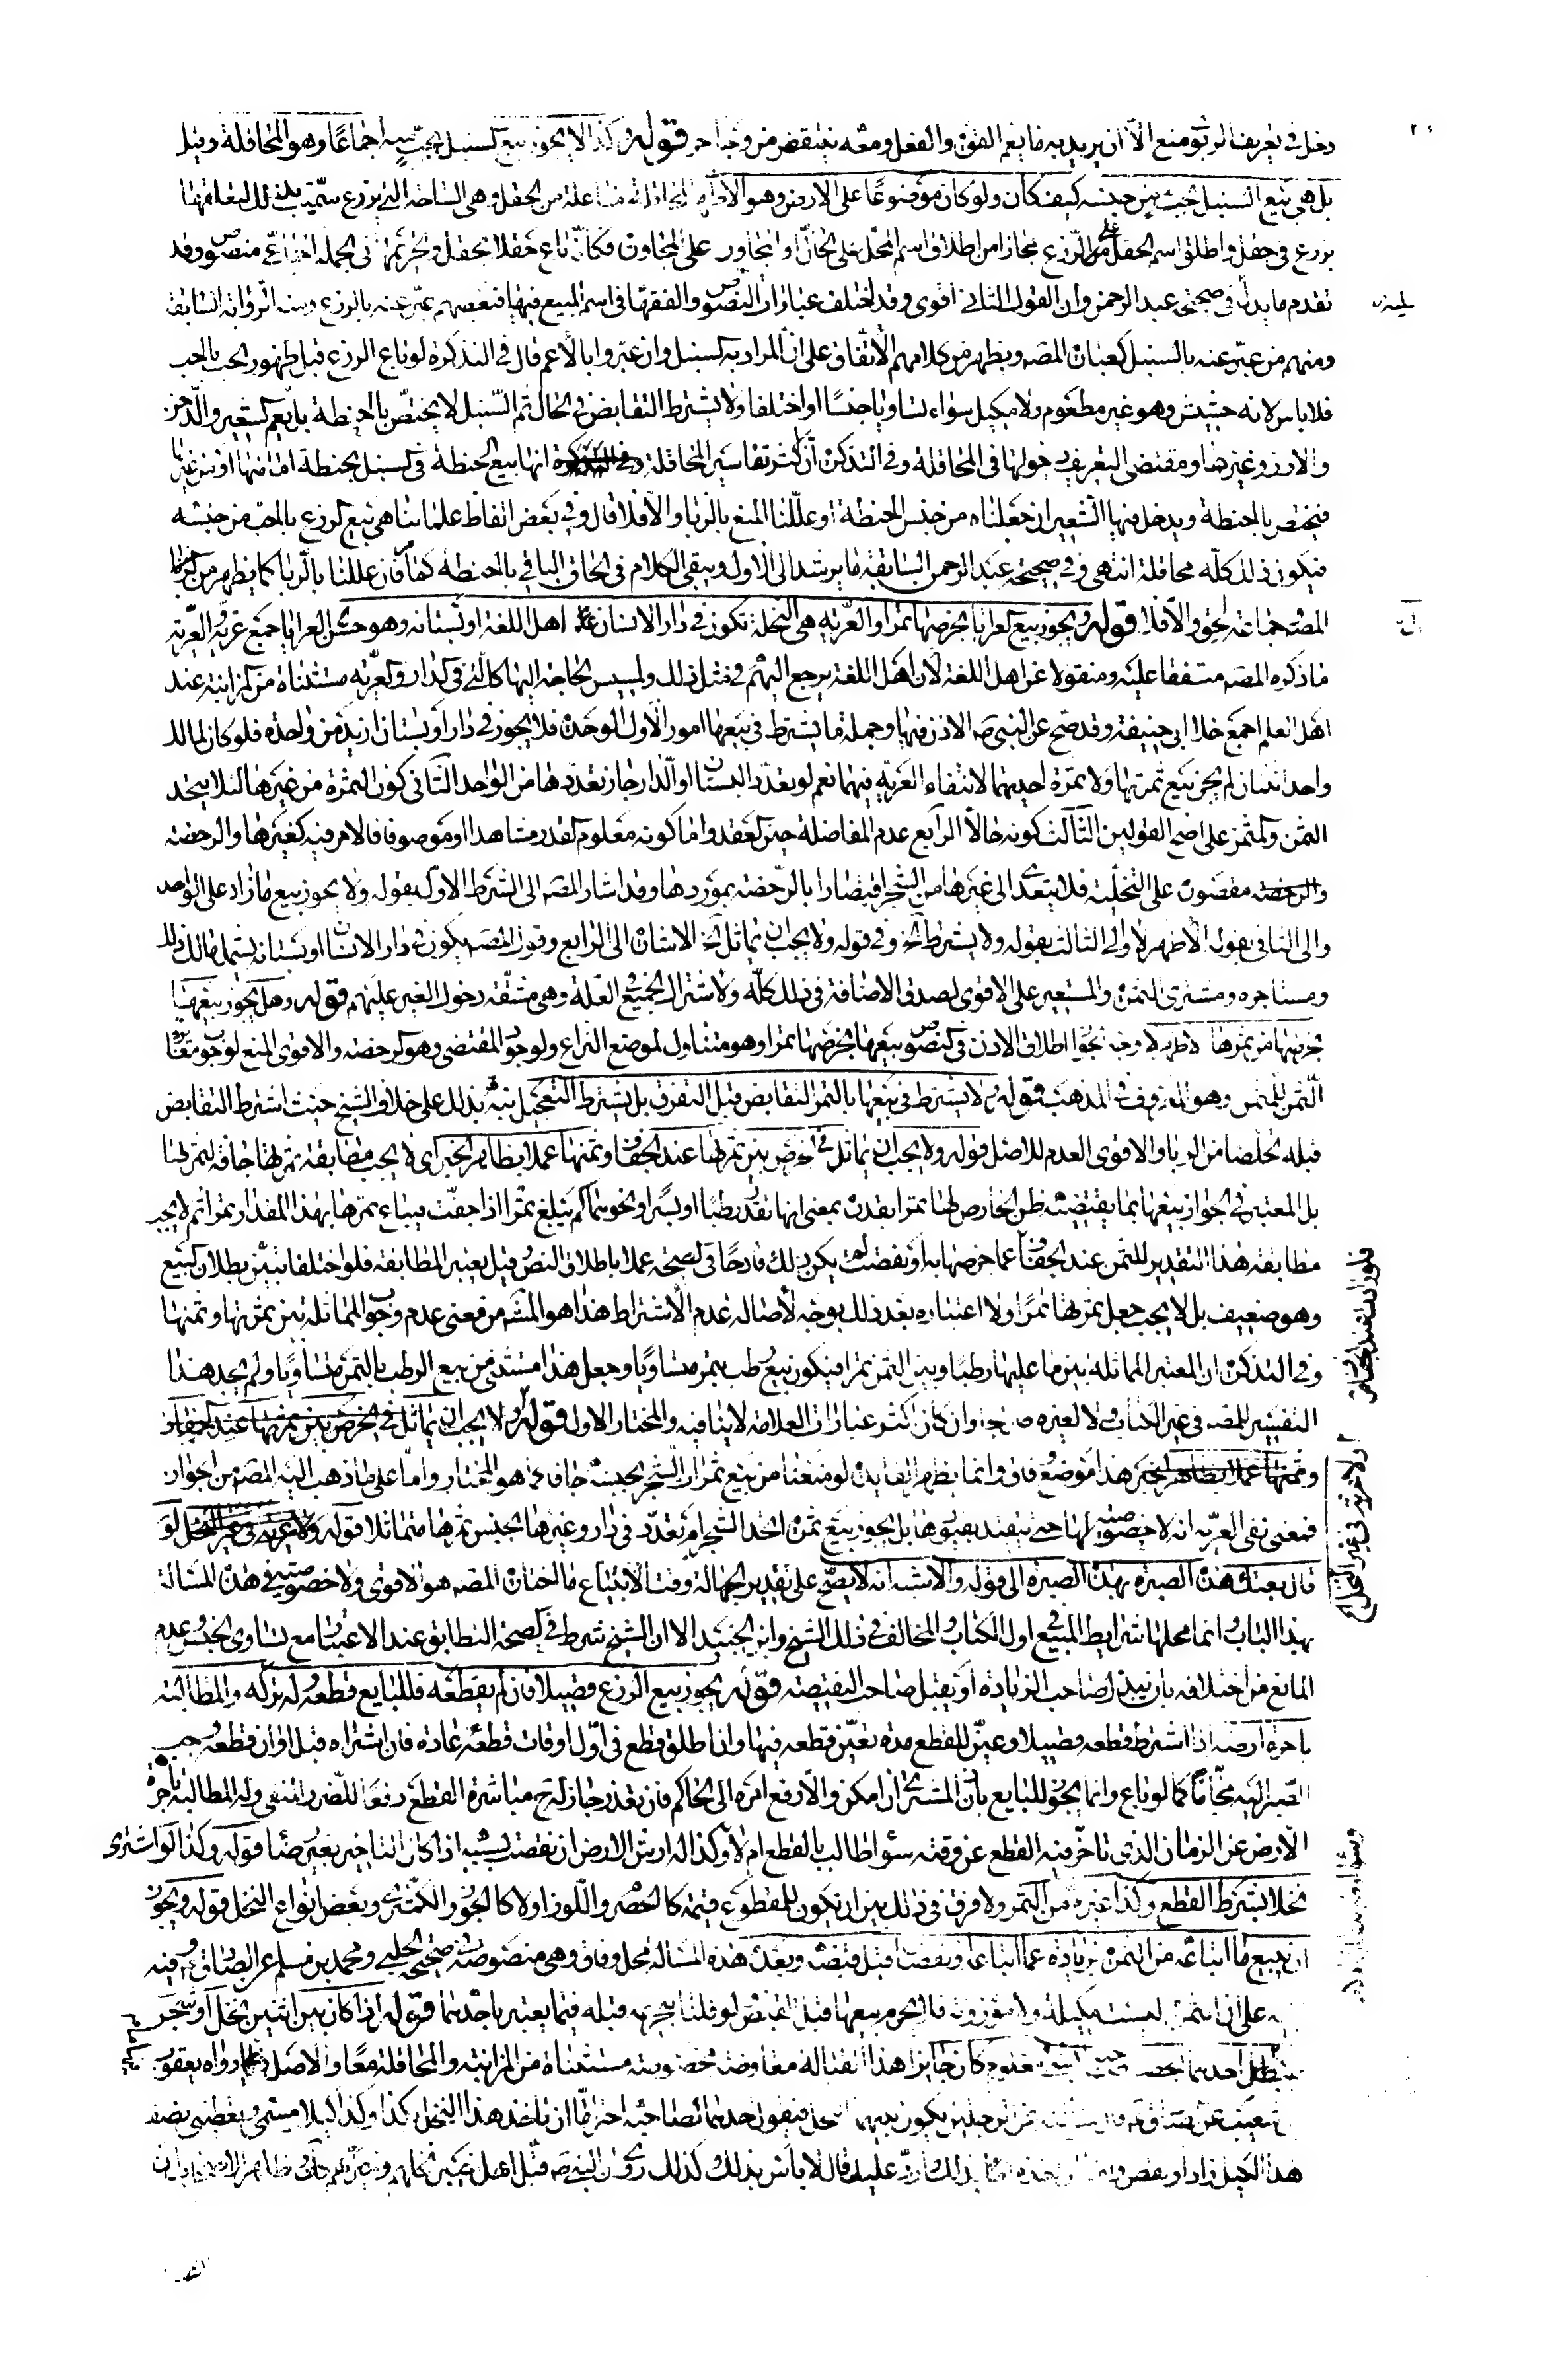 دخل في تعريف الربو منع الا ان يريد به ما يعم القوة والفعل ومعه ينتقض من وجه اخر قوله وكذا لا يجوز بيع السنبل بحب منه اجماعًا وهو المحاقلة وقيل
بل هي بيع السنبل بحب من جنسه كيف كان ولو كان موضوعًا على الارض وهو الاظهر المحاقلة مفاعلة من الحقل وهي الساحة التي يزرع سميت بذلك لتعلقها
بزرع في حقل واطلق اسم الحقل على الزرع مجازا من اطلاق اسم المحل على الحال او المجاور على المجاور فكانه باع حقلا بحقل وتحريمها في الجملة اجماعي منصوص وقد
تقدم ما يدل في صحيحة عبد الرحمن وان القول الثاني اقوى وقد اختلف عبارات النصوص والفقها في اسم المبيع فيها فبعضهم عبر عنه بالزرع ومنه الرواية السابقة
ومنهم من عبر عنه بالسنبل كعبارة المصه ويظهر من كلامهم الاتفاق على ان المراد به السنبل وان عبروا بالاعم قال في التذكرة لو باع الزرع قبل ظهور الحب بالحب
فلا باس لانه حشيش وهو غير مطعوم ولا مكيل سواء تساويا جنسًا او اختلفا ولا يشترط التقابض في الحال ثم السنبل لا يختص بالحنطة بل يعم الشعير والدخن
والارز وغيرها ومقتضى التعريف دخولها في المحاقلة وفي التذكرة ان اكثر تفاسير المحاقلة انها بيع الحنطة في السنبل بحنطة اما منها او من غيرها
فيختص بالحنطة ويدخل فيها الشعير ان جعلناه من جنس الحنطة او عللنا المنع بالربا والا فلا قال وفي بعض الفاظ علمائنا هي بيع الزرع بالحب من جنسه
فيكون ذلك كله محاقلة انتهى وفي صحيحة عبد الرحمن السابقة ما يرشد الى الاول ويبقى الكلام في الحاق الباقي بالحنطة كما مر فان عللنا بالربا كما يظهر من كلام
المصه وجماعة لحق والا فلا قوله ويجوز بيع العرايا بخرصها تمرا والعرية هي النخلة تكون في دار الانسان وقال اهل اللغة او بستانه وهو حسن العرايا جمع عرية والعرية
ما ذكره المصه متفقا عليه ومنقولا عن اهل اللغة لان اهل اللغة يرجع اليهم في مثل ذلك ولمسيس الحاجة اليها كالتي في الدار والعرية مستثناة من المزابنة عند
اهل العلم اجمع خلا ابي حنيفة وقد صح عن النبي صه الاذن فيها وجملة ما يشترط في بيعها امور الاول الوحدة فلا يجوز في دار او بستان ازيد من واحدة فلو كان لمالك
واحد اثنان لم يجز بيع ثمرتها ولا ثمرة احديهما لانتفاء العرية فيهما نعم لو تعدد البستان او الدار جاز تعددها من الواحد الثاني كون الثمرة من غيرها لئلا يتحد
الثمن والمثمن على اصح القولين الثالث كونه حالا الرابع عدم المفاضلة حين العقد واما كونه معلوم القدر مشاهدا او موصوفا فالامر فيه كغيرها والرخصة
والرخصة مقصورة على النخلية فلا يتعدى الى غيرها من الشجر اقتصارا بالرخصة بموردها وقد اشار المصه الى الشرط الاول بقوله ولا يجوز بيع ما زاد على الواحد
والى الثاني بقوله الاظهر لا والى الثالث بقوله ولا يشترط الخ وفي قوله ولا يجب ان يتماثل الخ الاشارة الى الرابع وقول المصه يكون في دار الانسان او بستانه يشمل مالك ذلك
ومستاجره ومشترى الثمرة والمستعير على الاقوى لصدق الاضافة في ذلك كله ولاشتراك الجميع في العلة وهي مشقة دخول الغير عليهم قوله وهل يجوز بيعها
بخرصها من تمرها الاظهر لا وجه الجواز اطلاق الاذن في النصوص ببيعها بخرصها تمرا وهو متناول لموضع النزاع ولوجود المقتضى وهو الرخصة والاقوى المنع لوجوب مغايرة
الثمن للمثمن وهو المعروف في المذهب قوله ولا يشترط في بيعها بالتمر التقابض قبل التفرق بل يشترط التعجيل نبه بذلك على خلاف الشيخ حيث اشترط التقابض
قبله تخلصا من الربا والاقوى العدم للاصل قوله ولا يجب ان يتماثل في الخرص بين ثمرتها عند الجفاف وثمنها عملا بظاهر الخبر اى لا يجب مطابقة ثمرتها جافة لثمرتها
بل المعتبر في الجواز بيعها بما يقتضيه ظن الخارص لها تمرا بقدره بمعنى انها تقدر رطبًا او بسرًا ونحو ما كم تبلغ تمرًا اذا جفت فيباع ثمرها بهذا المقدار تمرا ثم لا يجب
مطابقة هذا التقدير للثمن عند الجفاف عما خرصها به او نقصت لم يكن ذلك قادحًا في الصحة عملا باطلاق النص وقيل يعتبر المطابقة فلو اختلفا تبين بطلان البيع
وهو ضعيف بل لا يجب جعل ثمرتها تمرًا ولا اعتباره بعد ذلك بوجه لاصالة عدم الاشتراط هذا هو المشهه من معنى عدم وجوب المماثلة بين ثمرتها وثمنها
وفي التذكرة ان المعتبر المماثلة بين ما عليها رطبًا وبين التمر تمرا فيكون بيع رطب بتمر متساويًا وجعل هذا مستثنى من بيع الرطب بالتمر متساويًا ولم يجد هذا
التفسير للمصه في غير الكتاب ولا لغيره وان كان اكثر عبارات العلامة لا ينافيه والمختار الاول قوله ولا يجب ان يتماثل في الخرص بين ثمرتها عند الجفاف
وثمنها عملا بظاهر الخبر هذا موضع وفاق وانما يظهر الفايدة لو منعنا من بيع ثمرة الشجر بجنسه جافا كما هو المختار واما على ما ذهب اليه المصه من الجواز
فمعنى نفى العرية انه لا خصوصية لها حتى يتقيد بقيودها بل يجوز بيع ثمرة احد الشجر ام تعدد في دار وغيرها بجنس ثمرها متماثلا قوله ولا عرية في غير النخل لو
قال بعتك هذه الصبرة بهذه الصبرة الى قوله والاشبه انه لا يصح على تقدير الجهالة وقت الابتياع ما اختاره المصه هو الاقوى ولا خصوصية في هذه المسالة
بهذا الباب وانما محلها شرايط المبيع في اول الكتاب والمخالف في ذلك الشيخ وابن الجنيد الا ان الشيخ شرط في الصحة التطابق عند الاعتبار مع تساوى الجنس وعدم
المانع من اختلافه بان يبذل صاحب الزيادة او يقبل صاحب النقيصة قوله يجوز بيع الزرع قصيلا فان لم يقطعه فللبايع قطعه وله تركه والمطالبة
باجرة ارضه اذا اشترط قطعه قصيلا وعين للقطع مدة تعين قطعه فيها وان اطلق قطع في اول اوقات قطعه عادة فان اشتراه قبل اوان قطعه وجب
الصبر اليه مجانًا كما لو باع وانما يجوز للبايع باذن المشترى ان امكن والا رفع امره الى الحاكم فان تعذر جاز له ح مباشرة القطع دفعًا للضرر المنفى وله المطالبة باجرة
الارض عن الزمان الذي تاخر فيه القطع عن وقته سواء طالب بالقطع ام لا وكذا له ارش الارض ان نقصت بسببه اذا كان التاخير بغير رضا قوله وكذا لو اشترى
نخلا بشرط القطع وكذا غيره من الثمر ولا فرق في ذلك بين ان يكون للمقطوع قيمة كالحصرم واللوز او لا كالجوز والكمثرى وبعض انواع النخل قوله ويجوز
ان يبيع ما ابتاعه من الثمرة بزيادة عما ابتاعه او نقصان قبل قبضه وبعده هذه المسالة محل وفاق وهي منصوصة في صحيحي الحلبي ومحمد بن مسلم عن الصادق ع وفيه
على ان الثمرة ليست مكيلة ولا موزونة فلا يحرم بيعها قبل القبض لو قلنا بتحريمه قبله فيما يعتبر باحدهما قوله اذا كان بين اثنين نخل او شجر
فتقبل احدهما بحصة صاحبه بشىء معلوم كان جايزا هذا القبالة معاوضة مخصوصة مستثناة من المزابنة والمحاقلة معًا والاصل فيها ما رواه يعقوب
بن شعيب عن الصادق ع قال سالته عن الرجلين يكون بينهما النخل فيقول احدهما لصاحبه اختر اما ان ياخذ هذا النخل بكذا وكذا كيلا مسمى ويعطيني نصف
هذا الكيل زاد او نقص واما ان اخذه انا بذلك وارد عليك قال لا باس بذلك وكذلك روى ان النبي صه قبل اهل خيبر نخلهم
ولا عرية في غير النخل